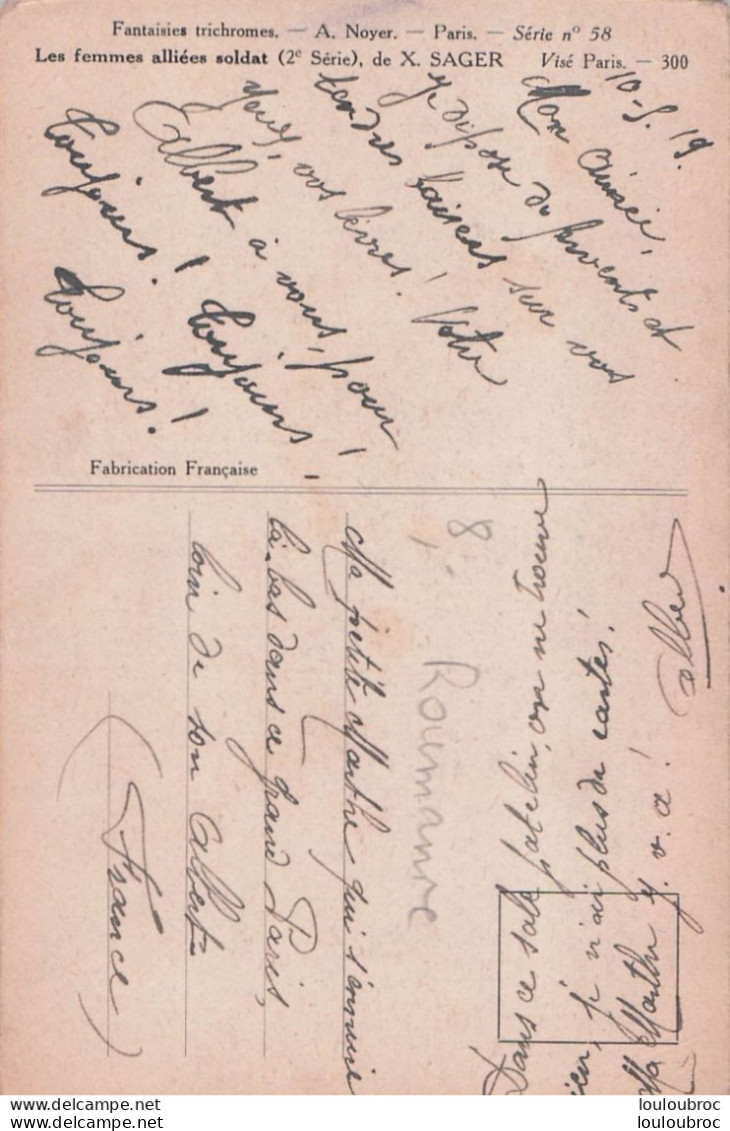 Fantaisies trichromes. — A. Noyer. — Paris. — Série n° 58
Les femmes alliées soldat (2e Série), de X. SAGER Visé Paris. — 300
10-5.19.
Mon Aimée,
je dispose du fervents et
tendres baisers sur vos
yeux, vos lèvres! Votre
Albert à vous, pour
toujours! toujours!
toujours!
Fabrication Française
Dans ce sale patelin, on ne trouve
rien, je n'ai plus de cartes!
Ma Marthe y. v. a! Albert
8
Roumanie
Ma petite Marthe qui s'ennuie
là-bas dans ce grand Paris,
loin de son Albert
(France)
louloubroc
louloubroc
louloubroc
louloubroc